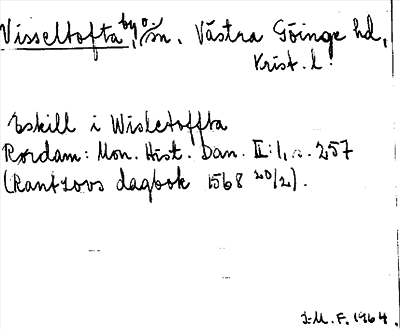 Visseltofta by o sn. Västra Göinge hd,
Krist. l.
Eskill i Wisletoffta
Rørdam: Mon. Hist. Dan. II:1, s. 257
(Rantzovs dagbok 1568 20/2).
J-M. F. 1964.